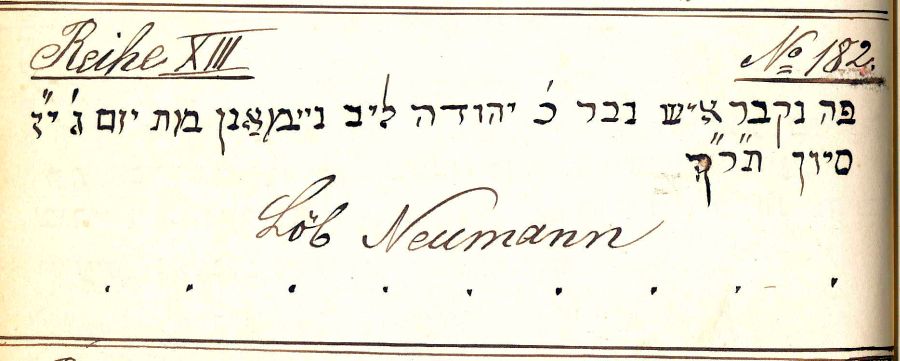 Reihe XIII № 182.
פה נקבר איש גבר כ׳ יהודה ליב ניימאַנן מת יום ג׳ י״ז
סיון
Löb Neumann